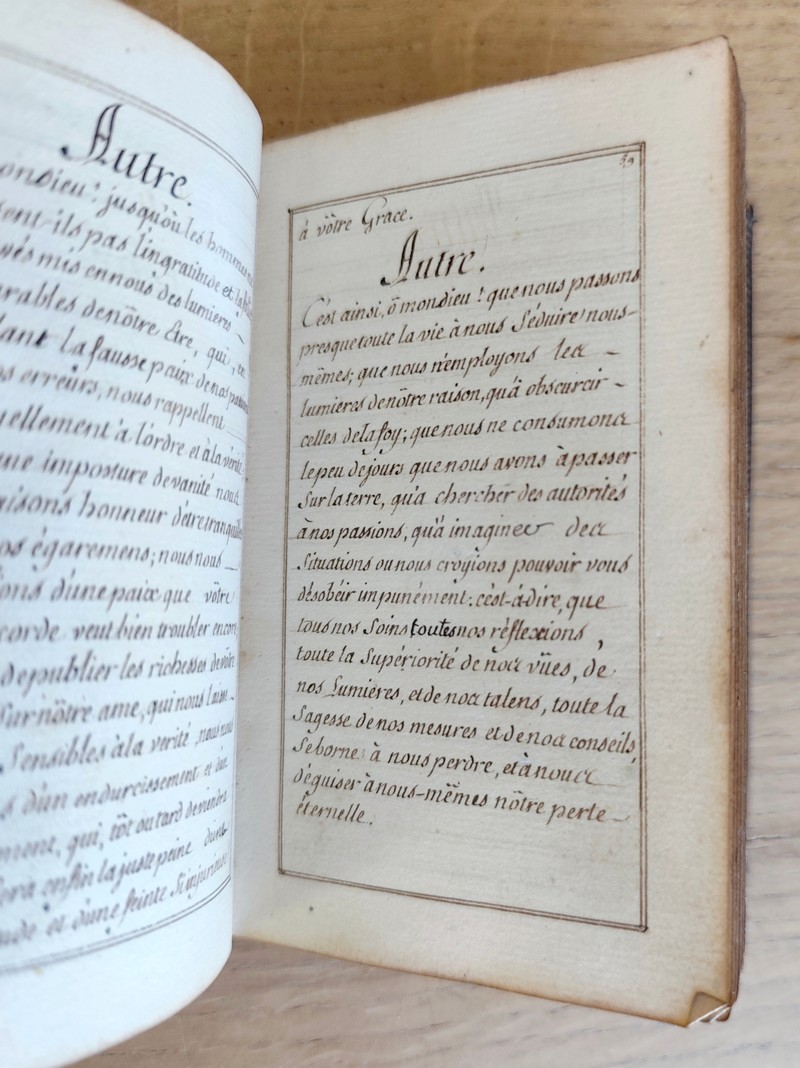 Autre.
mondieu! jusqu'où les hommes
ils pas l'ingratitude et
mis en nous des lumieres
denôtre Être, qui,
la fausse paix de nos passions
erreurs, nous rappellent
à l'ordre et à la verité
imposture devanité nous
honneur d'être tranquilles
égaremens; nous nous
d'une paix que vôtre
veut bien troubler encore
de publier les richesses devôtre
Sur nôtre ame, qui nous laisse
Sensibles à la verité, nous nous
d'un endurcissement et d'un
qui, tôt ou tard deviendra
enfin la juste peine
et d'une feinte Si injurieuse
59
à vôtre Grace.
Autre.
C'est ainsi, ô mondieu! que nous passons
presque toute la vie à nous Séduire nous-
mêmes; que nous n'employons les
lumieres denôtre raison, qu'à obscurcir
celles dela foy; que nous ne consumons
le peu dejours que nous avons à passer
Sur la terre, qu'à chercher des autorités
à nos passions, qu'à imaginer des
Situations ou nous croyions pouvoir vous
désobéir impunément; c'est-à-dire, que
tous nos Soins toutes nos réflexions,
toute la Supériorité de nos vües, de
nos Lumières, et de nos talens, toute la
Sagesse de nos mesures et de nos conseils,
Se borne à nous perdre, et à nous
déguiser à nous-mêmes nôtre perte
éternelle.